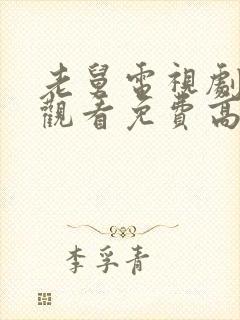 老舅電視劇
觀看免費高
李孚青